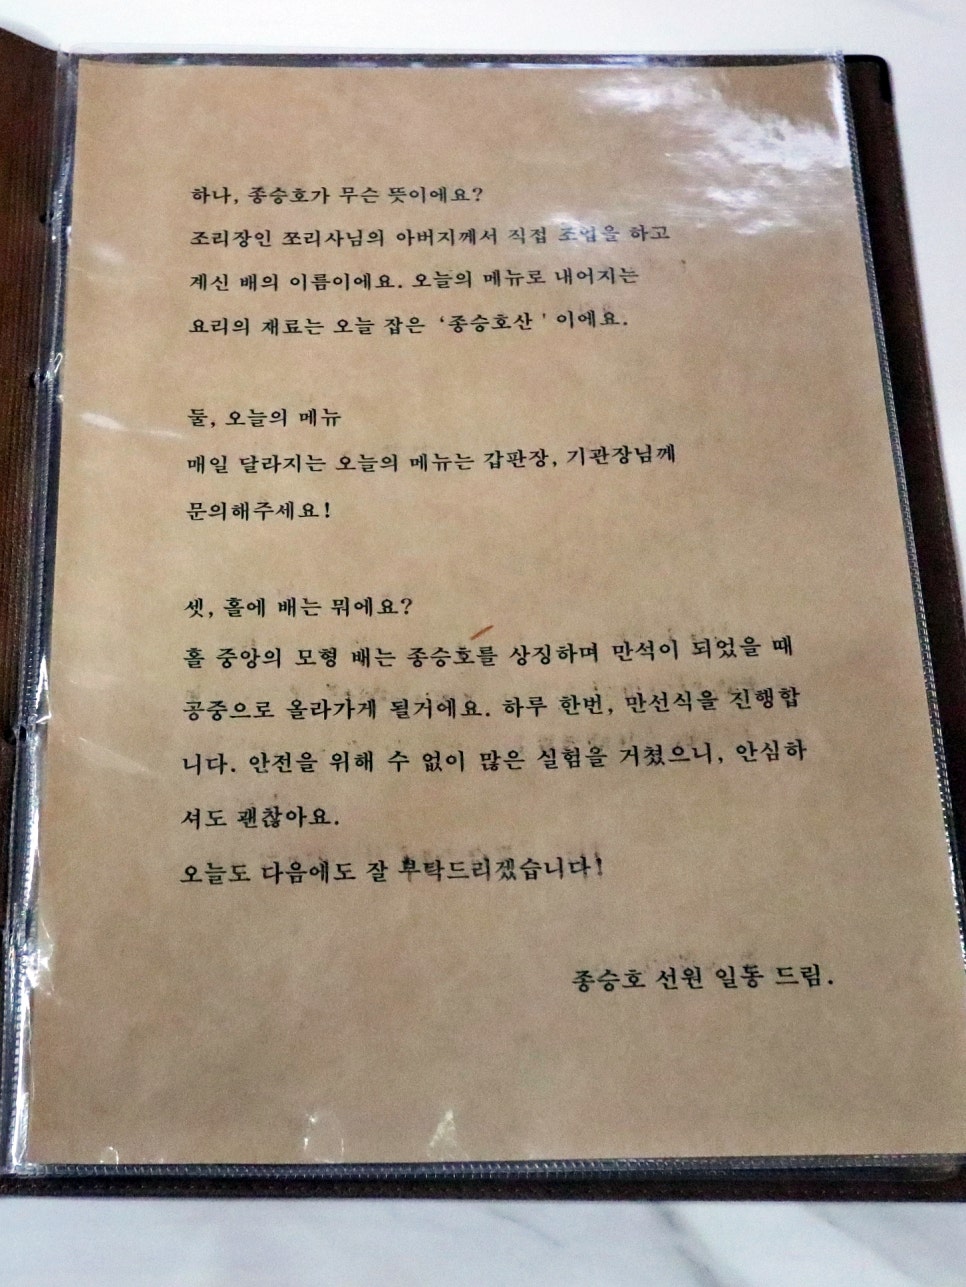 하나, 종승호가 무슨 뜻이에요?
조리장인 쪼리사님의 아버지께서 직접 조업을 하고
계신 배의 이름이에요. 오늘의 메뉴로 내어지는
요리의 재료는 오늘 잡은 '종승호산' 이에요.
둘, 오늘의 메뉴
매일 달라지는 오늘의 메뉴는 갑판장, 기관장님께
문의해주세요!
셋, 홀에 배는 뭐에요?
홀 중앙의 모형 배는 종승호를 상징하며 만석이 되었을 때
공중으로 올라가게 될거에요. 하루 한번, 만선식을 진행합
니다. 안전을 위해 수 없이 많은 실험을 거쳤으니, 안심하
셔도 괜찮아요.
오늘도 다음에도 잘 부탁드리겠습니다!
종승호 선원 일동 드림.